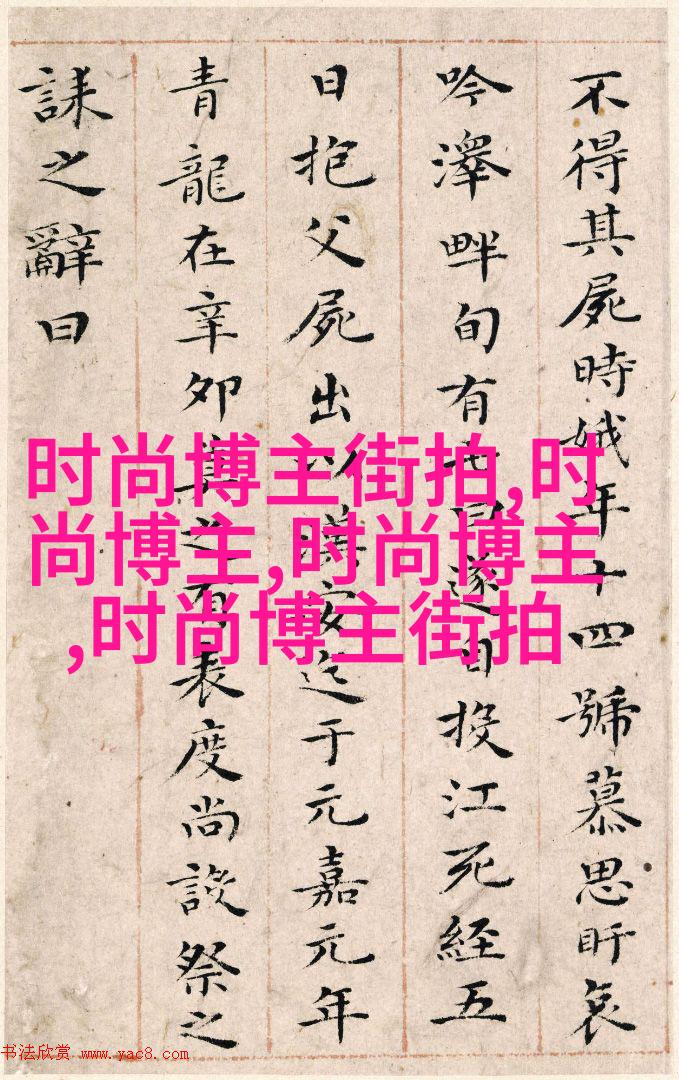 不得其屍時娥年十四號慕思盱哀
吟澤畔旬有七日遂自投江死經五
日抱父屍出以漢安迄于元嘉元年
青龍在辛卯莫之有表度尚設祭之
誄之辭曰
时尚博主街拍,时
尚博主,时尚博主
,时尚博主街拍
书法欣赏 www.yac8.com